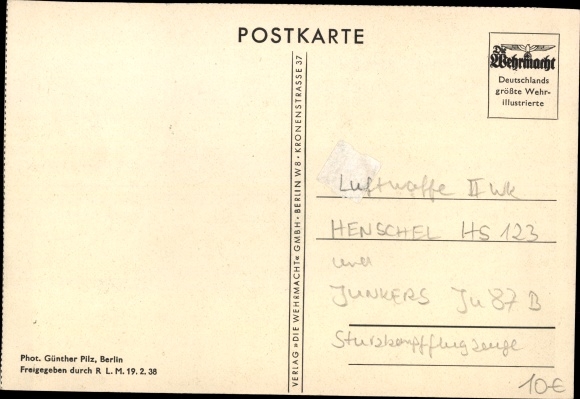 POSTKARTE
Die
Wehrmacht
Deutschlands
größte Wehr-
illustrierte
VERLAG »DIE WEHRMACHT« GMBH · BERLIN W 8 · KRONENSTRASSE 37
Luftwaffe II WK
HENSCHEL HS 123
und
JUNKERS Ju 87 B
Sturzkampfflugzeuge
Phot. Günther Pilz, Berlin
Freigegeben durch R L. M. 19. 2. 38
10€